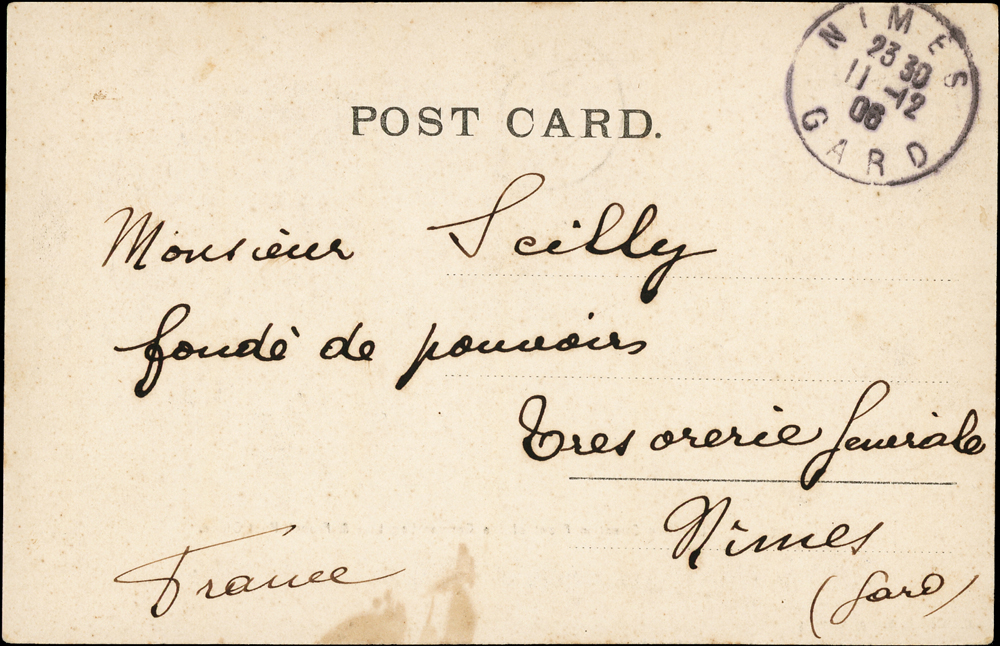 NIMES
23 30
11 -12
06
GARD
POST CARD.
Monsieur Scilly
fondé de pouvoirs
Tresorerie Generale
Nimes
(Gard)
France